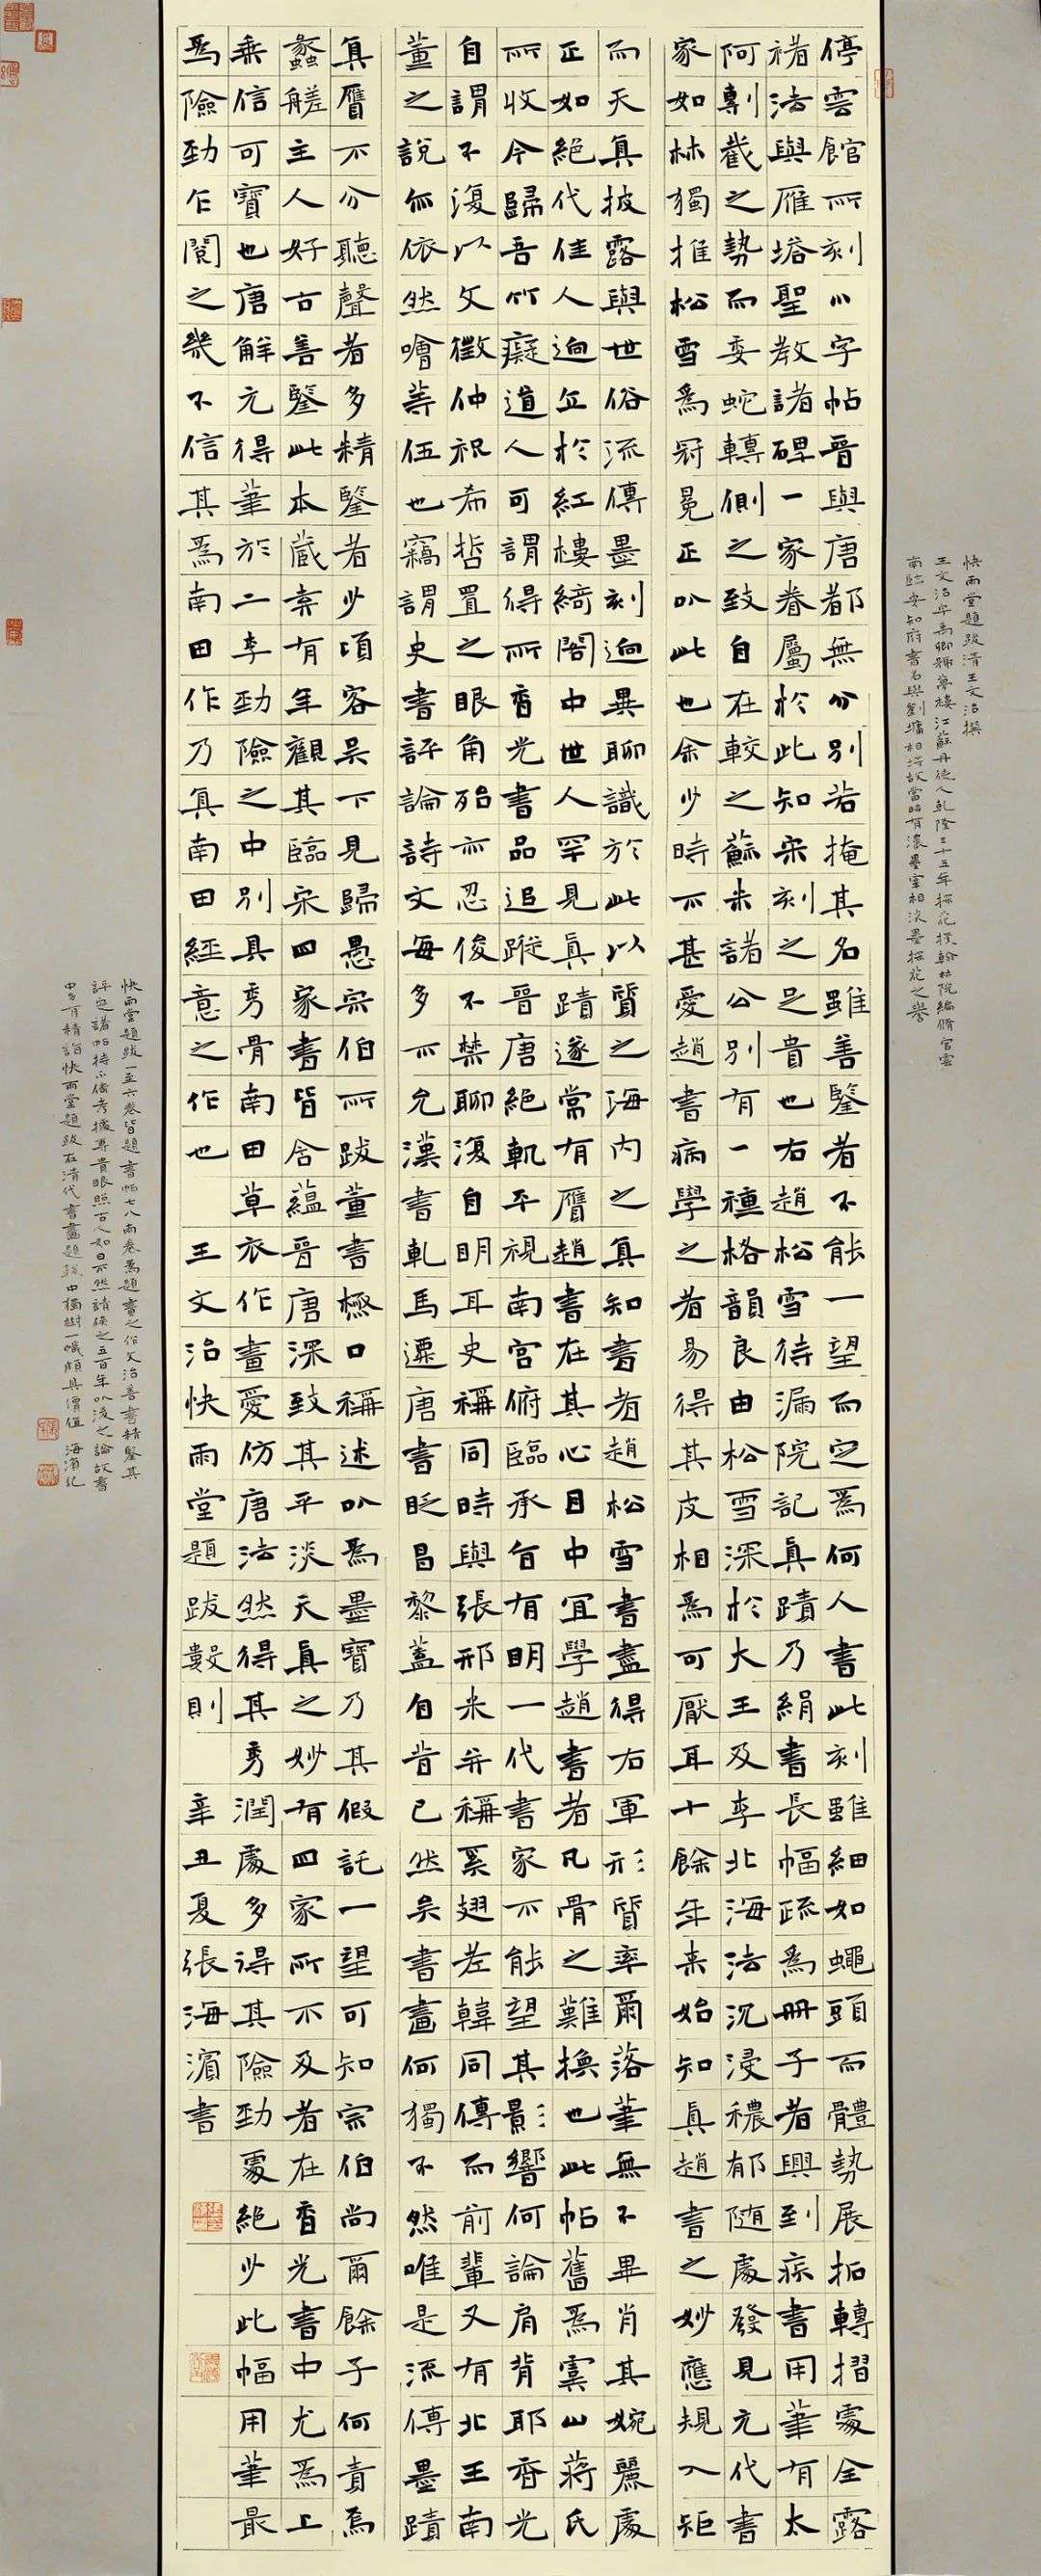 快雨堂題跋清王文治撰
王文治字禹卿號夢樓江蘇丹徒人乾隆三十五年探花授翰林院編脩官雲
南臨安知府書名與劉墉相埒故當時有濃墨宰相淡墨探花之譽
停雲館所刻小字帖晉與唐都無分別若掩其名雖善鑒者不能一望而定爲何人書此刻雖細如蠅頭而體勢展拓轉摺處全露
褚法與雁塔聖教諸碑一家眷屬於此知宋刻之足貴也右趙松雪待漏院記真蹟乃絹書長幅疏爲冊子者興到疾書用筆有太
阿剸截之勢而委蛇轉側之致自在較之蘇米諸公別有一種格韻良由松雪深於大王及李北海法沉浸穠郁随處發見元代書
家如林獨推松雪爲冠冕正以此也余少時不甚愛趙書病學之者易得其皮相爲可厭耳十餘年來始知真趙書之妙應規入矩
而天真披露與世俗流傳墨刻迥異聊識於此以質之海內之真知書者趙松雪書盡得右軍形質率爾落筆無不畢肖其婉麗處
正如絕代佳人迥立於紅樓綺閣中世人罕見真蹟遂常有贗趙書在其心目中宜學趙書者凡骨之難換也此帖舊爲虞山蔣氏
所收今歸吾竹癡道人可謂得所香光書品追蹤晉唐絕軌平視南宮俯臨承旨有明一代書家不能望其影響何論肩背耶香光
自謂不復以文徵仲祝希哲置之眼角殆亦忍俊不禁聊復自明耳史稱同時與張邢米并稱奚翅老韓同傳而前輩又有北王南
董之說亦依然噲等伍也竊謂史書評論詩文每多不允漢書軋馬遷唐書貶昌黎蓋自昔已然矣書畫何獨不然唯是流傳墨蹟
真贗不分聽聲者多精鑒者少頃客吳下見歸愚宗伯所跋董書極口稱述以爲墨寶乃其假託一望可知宗伯尚爾餘子何責焉
蠡艖主人好古善鑒此本藏弆有年觀其臨宋四家書皆含蘊晉唐深致其平淡天真之妙有四家所不及者在香光書中尤爲上
乘信可寶也唐解元得筆於二李勁險之中別具秀骨南田草衣作畫愛仿唐法然得其秀潤處多得其險勁處絕少此幅用筆最
爲險勁乍閱之幾不信其爲南田作乃真南田經意之作也 王文治快雨堂題跋數則 辛丑夏張海濱書
快雨堂題跋一至六卷皆題書帖七八兩卷爲題畫之作文治善書精鑒其
評定諸帖特不倚考據專貴眼照古人如曰不然請俟之五百年以後之論故書
中多有精詣快雨堂題跋在清代書畫題跋中獨樹一幟頗具價值 海濱記